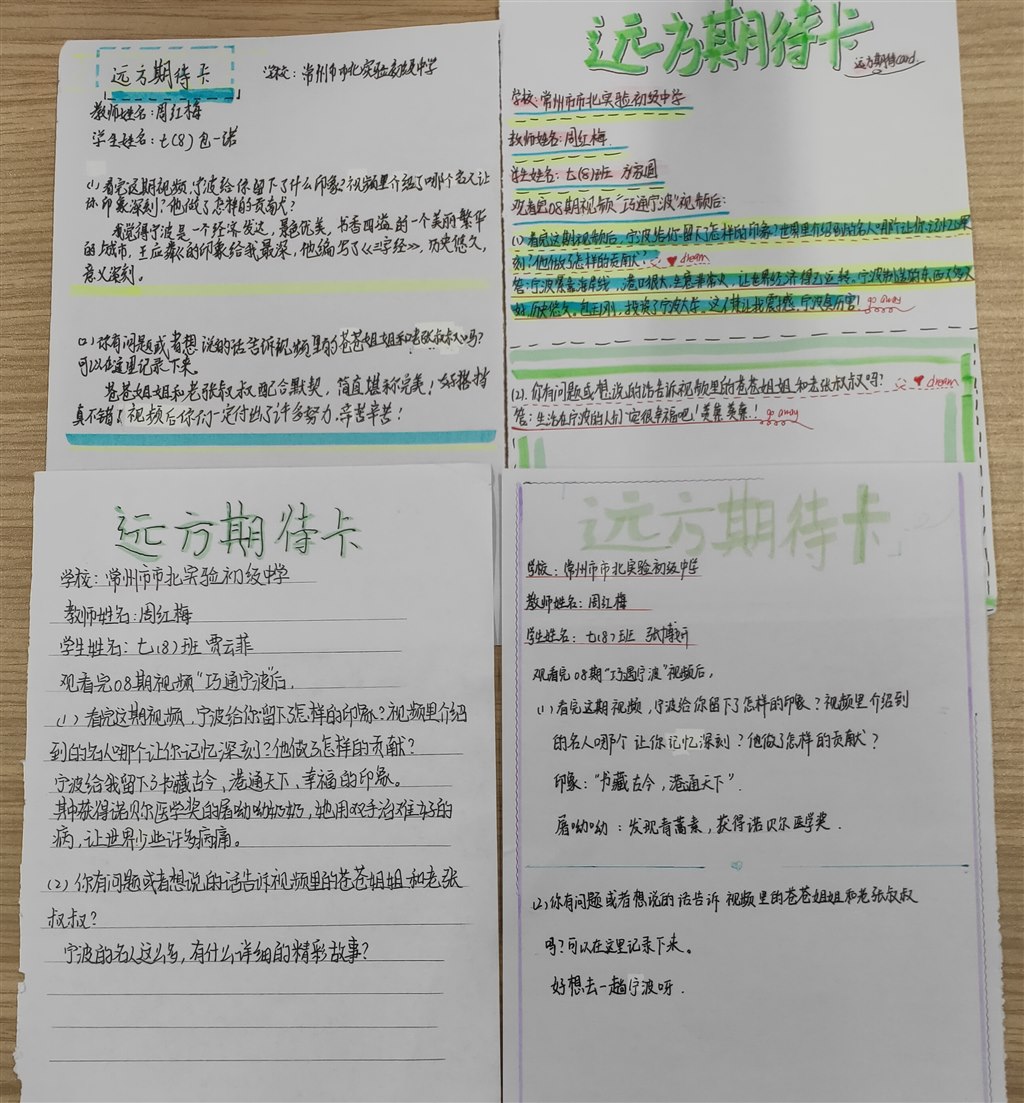 远方期待卡
学校:常州市市北实验初级中学
教师姓名:周红梅
学生姓名:七(8)包一诺
(1)看完这期视频,宁波给你留下了什么印象?视频里介绍了哪个名人让
你印象深刻?他做了怎样的贡献?
我觉得宁波是一个经济发达,景色优美,书香四溢的一个美丽繁华
的城市,王应麟的印象给我最深,他编写了《三字经》,历史悠久,
意义深刻。
(2)你有问题或者想说的话告诉视频里的苍苍姐姐和老张叔叔吗?
可以在这里记录下来。
苍苍姐姐和老张叔叔配合默契,简直堪称完美!
真不错!视频后你们一定付出了许多努力,辛苦辛苦!
远方期待卡
远方期待card
学校:常州市市北实验初级中学
教师姓名:周红梅
学生姓名:七(8)班 方家圆
观看完08期视频“巧通宁波”视频后:
(1)看完这期视频后,宁波给你留下怎样的印象?视频里介绍到的名人哪个让你记忆深
刻?他做了怎样的贡献? dream
答:宁波靠海岸线,港口很大,生意非常火,让世界经济得到运转。宁波制造的东西
历史悠久。包玉刚,投资了宁波大学,这 让我震撼,宁波真厉害! go away
(2).你有问题或想说的话告诉视频里的苍苍姐姐和老张叔叔吗? dream
答:生活在宁波的人们一定很幸福吧!羡慕羡慕! go away
远方期待卡
学校:常州市市北实验初级中学
教师姓名:周红梅
学生姓名:七(8)班 贾云菲
观看完08期视频“巧通宁波”后,
(1)看完这期视频,宁波给你留下了怎样的印象?视频里介绍
到的名人哪个让你记忆深刻?他做了怎样的贡献?
宁波给我留下了书藏古今、港通天下、幸福的印象。
其中获得诺贝尔医学奖的屠呦呦奶奶,她用双手治难好的
病,让世界少些许多病痛。
(2)你有问题或者想说的话告诉视频里的苍苍姐姐和老张
叔叔?
宁波的名人这么多,有什么详细的精彩故事?
远方期待卡
学校:常州市市北实验初级中学
教师姓名:周红梅
学生姓名:七(8)班 张博妍
观看完08期“巧通宁波”视频后,
(1)看完这期视频,宁波给你留下了怎样的印象?视频里介绍到
的名人哪个让你记忆深刻?他做了怎样的贡献?
印象:“书藏古今,港通天下”
屠呦呦:发现青蒿素,获得诺贝尔医学奖.
(2)你有问题或者想说的话告诉视频里的苍苍姐姐和老张叔叔
吗?可以在这里记录下来。
好想去一趟宁波呀.